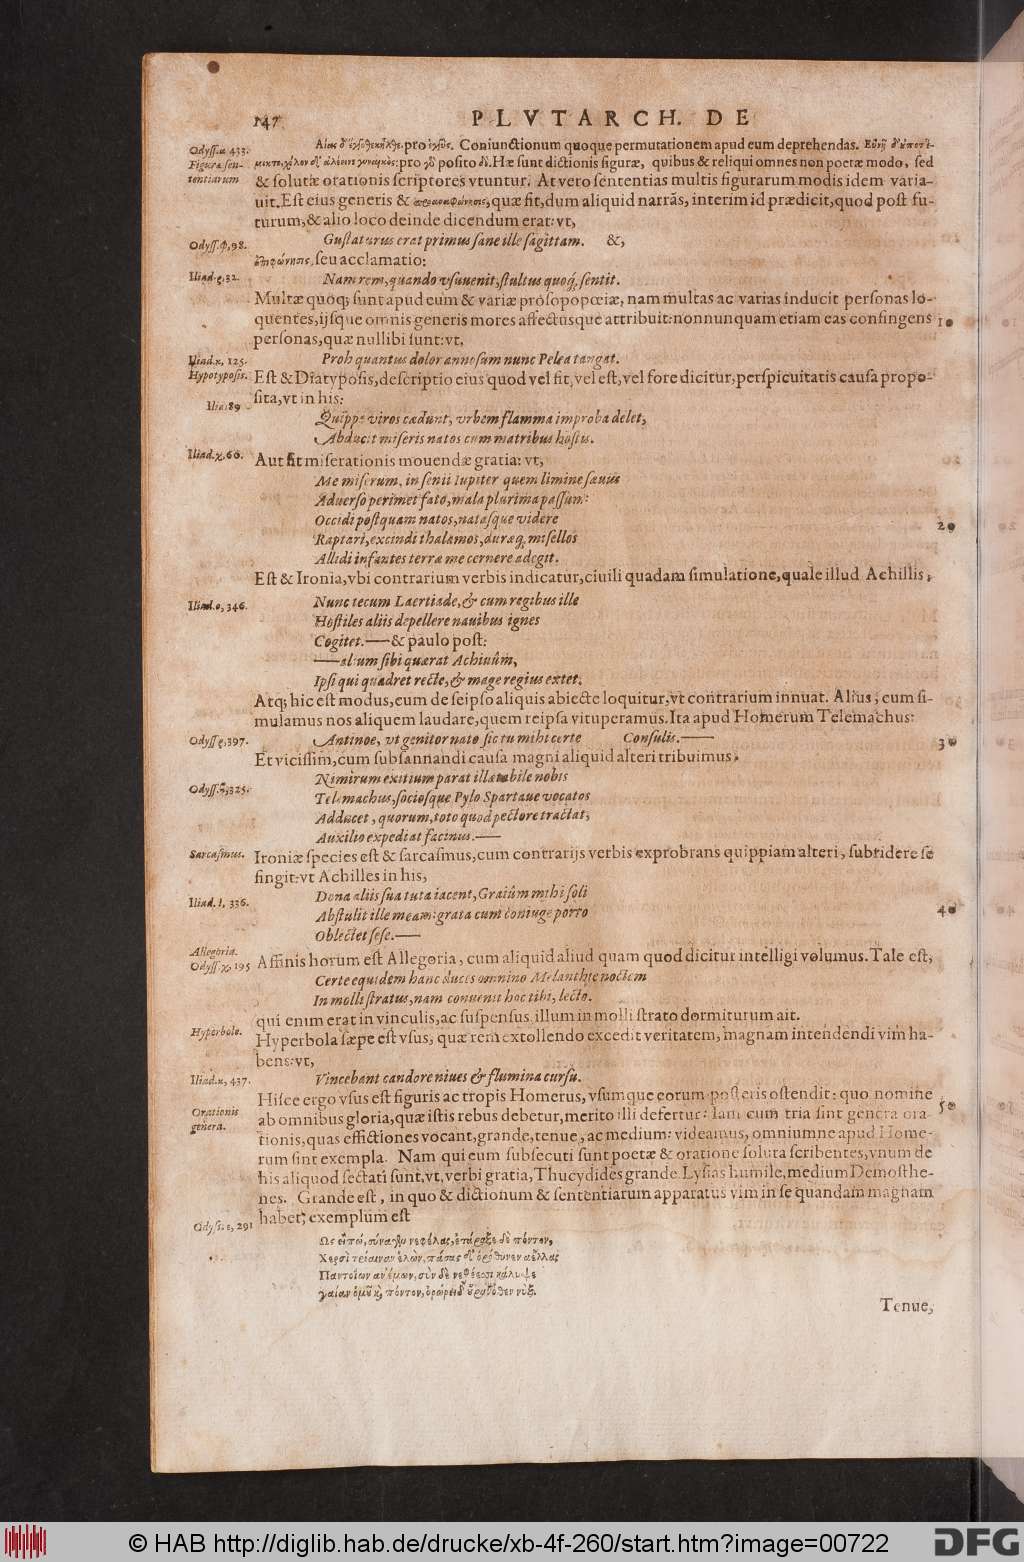 147
PLVTARCH. DE
pro Coniunctionum quoque permutationem apud eum deprehendas.
Odyss.α 433.
pro posito Hæ sunt dictionis figuræ, quibus & reliqui omnes non poetæ modo, sed
Figura sen-
tentiarum
& solutæ orationis scriptores vtuntur. At vero sententias multis figurarum modis idem varia-
uit. Est eius generis & quæ fit, dum aliquid narrās, interim id prædicit, quod post fu-
turum, & alio loco deinde dicendum erat: vt,
Odyss.φ,98.
Gustaturus erat primus sane ille sagittam. &,
seu acclamatio:
Iliad.ρ,32.
Nam rem, quando vsuuenit, stultus quoq; sentit.
Multæ quoq; sunt apud eum & variæ prosopopœiæ, nam multas ac varias inducit personas lo-
quentes, ijsque omnis generis mores affectusque attribuit: nonnunquam etiam eas confingens
10
personas, quæ nullibi sunt: vt,
Iliad.κ, 125.
Proh quantus dolor annosum nunc Pelea tangat.
Hypotyposis.
Est & Diatyposis, descriptio eius quod vel fit, vel est, vel fore dicitur, perspicuitatis causa propo-
sita, vt in his:
Quippe viros cædunt, vrbem flamma improba delet,
Abducit miseris natos cum matribus hostis.
Iliad.χ,60.
Aut fit miserationis mouendæ gratia: vt,
Me miserum, in senii Iupiter quem limine sæuus
Aduerso perimet fato, mala plurima passum:
Occidi postquam natos, natasque videre
20
Raptari, excindi thalamos, duræq; misellos
Allidi infantes terræ me cernere adegit.
Est & Ironia, vbi contrarium verbis indicatur, ciuili quadam simulatione, quale illud Achillis,
Iliad.ο, 346.
Nunc tecum Laertiade, & cum regibus ille
Hostiles aliis depellere nauibus ignes
Cogitet.— & paulo post:
—alium sibi quærat Achiuûm,
Ipsi qui quadret recte, & mage regius extet.
Atq; hic est modus, cum de seipso aliquis abiecte loquitur, vt contrarium innuat. Alius, cum si-
mulamus nos aliquem laudare, quem reipsa vituperamus. Ita apud Homerum Telemachus:
Odyss ρ,397.
Antinoe, vt genitor nato sic tu mihi certe Consulis.—
30
Et vicissim, cum subsannandi causa magni aliquid alteri tribuimus.
Nimirum exitium parat illætabile nobis
Odyss.β,325.
Telemachus, sociosque Pylo Spartaue vocatos
Adducet, quorum, toto quod pectore tractat,
Auxilio expediat facinus.—
Sarcasmus.
Ironiæ species est & sarcasmus, cum contrarijs verbis exprobrans quippiam alteri, subridere se
fingit: vt Achilles in his,
Iliad. ι, 336.
Dona aliis sua tuta iacent, Graiûm mihi soli
Abstulit ille meam: grata cum coniuge porro
40
Oblectet sese.—
Allegoria.
Odyss.χ, 195
Affinis horum est Allegoria, cum aliquid aliud quam quod dicitur intelligi volumus. Tale est,
Certe equidem hanc duces omnino Melanthie noctem
In molli stratus, nam conuenit hoc tibi, lecto.
qui enim erat in vinculis, ac suspensus, illum in molli strato dormiturum ait.
Hyperbole.
Hyperbola sæpe est vsus, quæ rem extollendo excedit veritatem, magnam intendendi vim ha-
bens: vt,
Iliad.κ, 437.
Vincebant candore niues & flumina cursu.
Hisce ergo vsus est figuris ac tropis Homerus, vsumque eorum posteris ostendit: quo nomine
50
Orationis
genera.
ab omnibus gloria, quæ istis rebus debetur, merito illi defertur: Iam cum tria sint genera ora-
tionis, quas effictiones vocant, grande, tenue, ac medium: videamus, omniumne apud Home-
rum sint exempla. Nam qui eum subsecuti sunt poetæ & oratione soluta scribentes, vnum de
his aliquod sectati sunt, vt, verbi gratia, Thucydides grande. Lysias humile, medium Demosthe-
nes. Grande est, in quo & dictionum & sententiarum apparatus vim in se quandam magnam
habet; exemplum est
Odyss. ε, 291
Ως εἰπὼ, σύναγεν νεφέλας, ἐτάραξε δὲ πόντον,
Χερσὶ τρίαιναν ἑλὼν, πάσας δ' ὀρόθυνεν ἀέλλας
Παντοίων ἀνέμων, σὺν δὲ νεφέεσσι κάλυψε
γαίαν ὁμοῦ καὶ πόντον, ὀρώρει δ' οὐρανόθεν νύξ.
Tenue,
© HAB http://diglib.hab.de/drucke/xb-4f-260/start.htm?image=00722
DFG